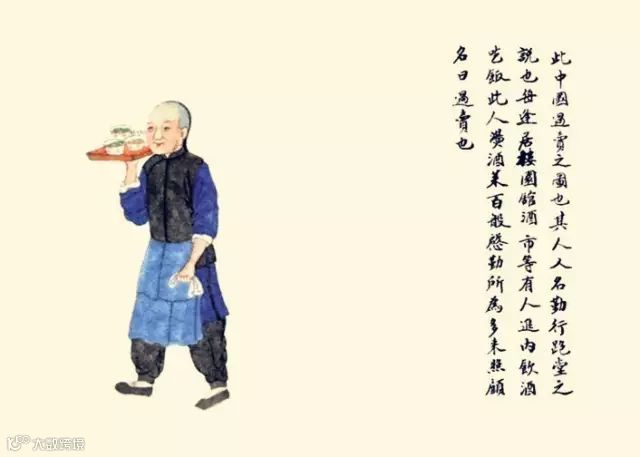 此中國過賣之圖也其人人名勤行跑堂之
說也每逢居樓園館酒市等有人進内飲酒
吃飯此人燙酒菜百般慇勤所爲多来照顧
名曰過賣也
大數跨境